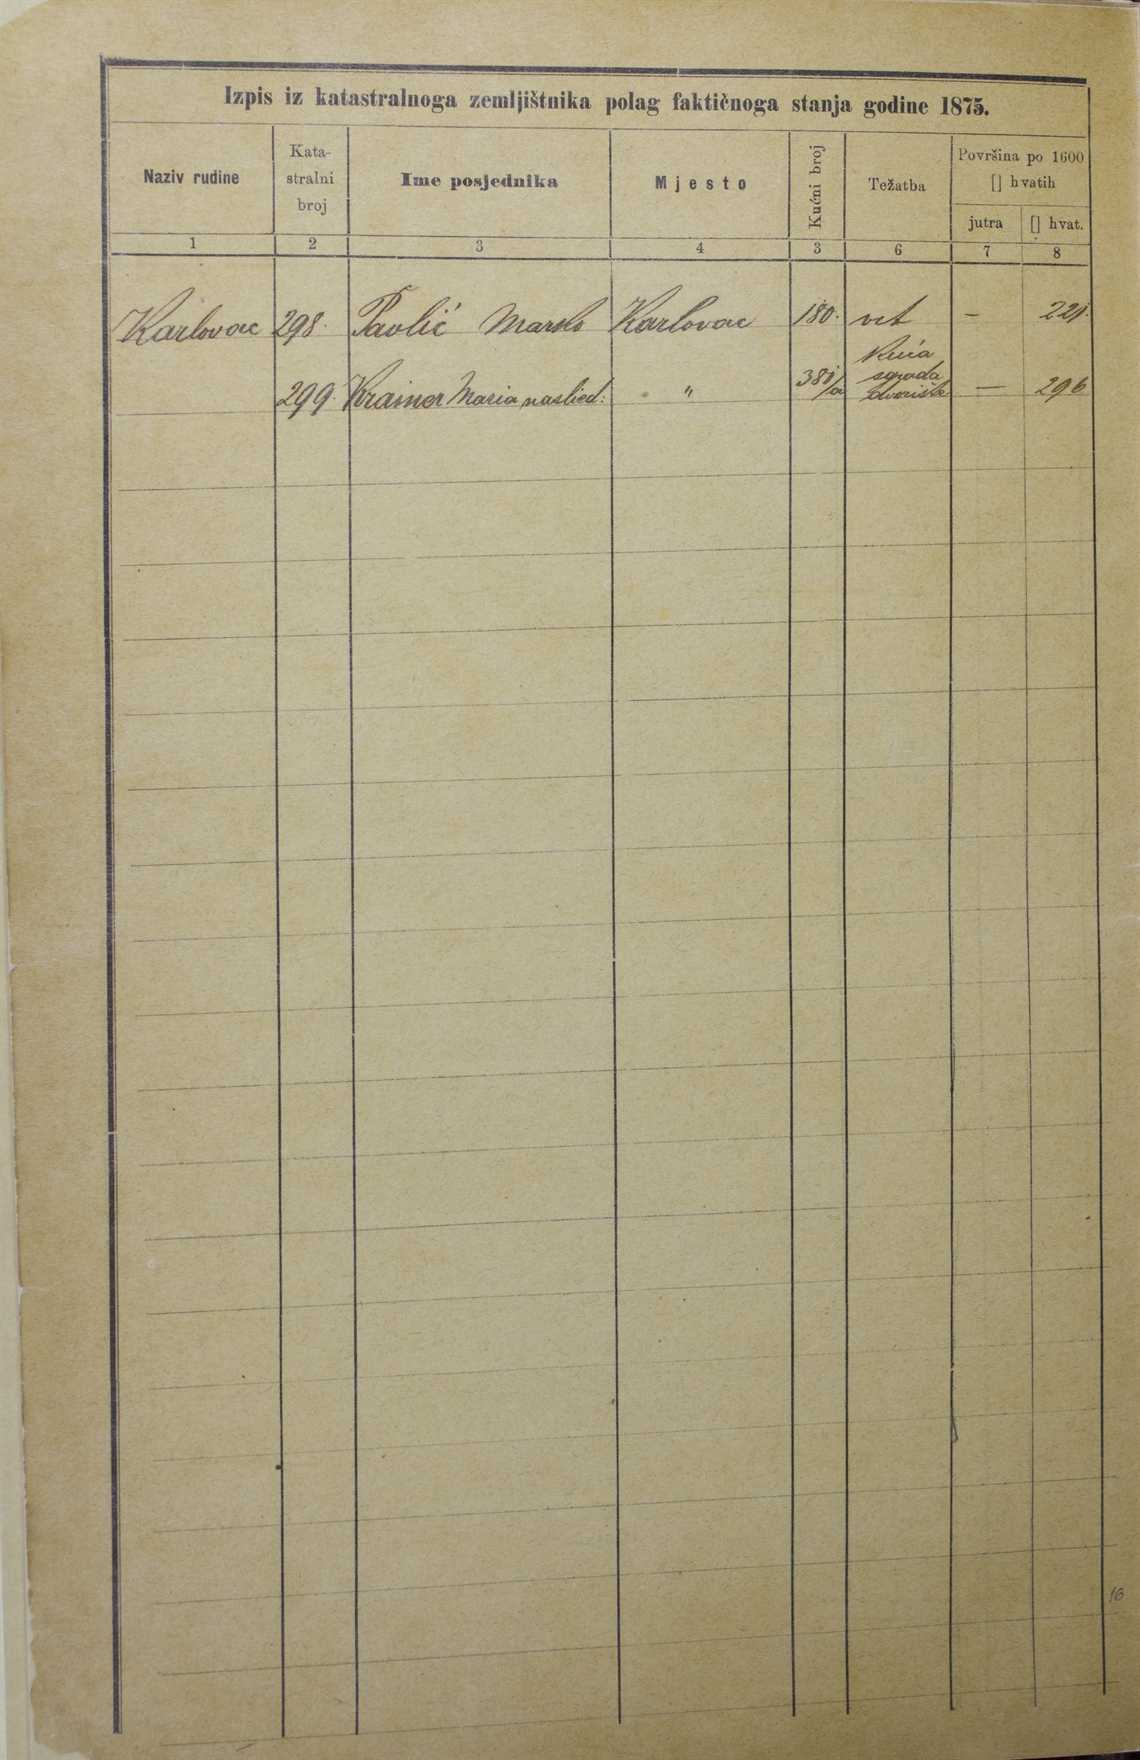 Izpis iz katastralnoga zemljištnika polag faktičnoga stanja godine 1875.
Naziv rudine Kata-stralni broj Ime posjednika Mjesto Kućni broj Težatba Površina po 1600 [] hvatih
jutra [] hvat.
1 2 3 4 3 6 7 8
Karlovac 298. Pavlić Marko Karlovac 180. vrt — 221.
299. Krainer Maria naslied: " /a Kuća sgrada dvorište — 296
16